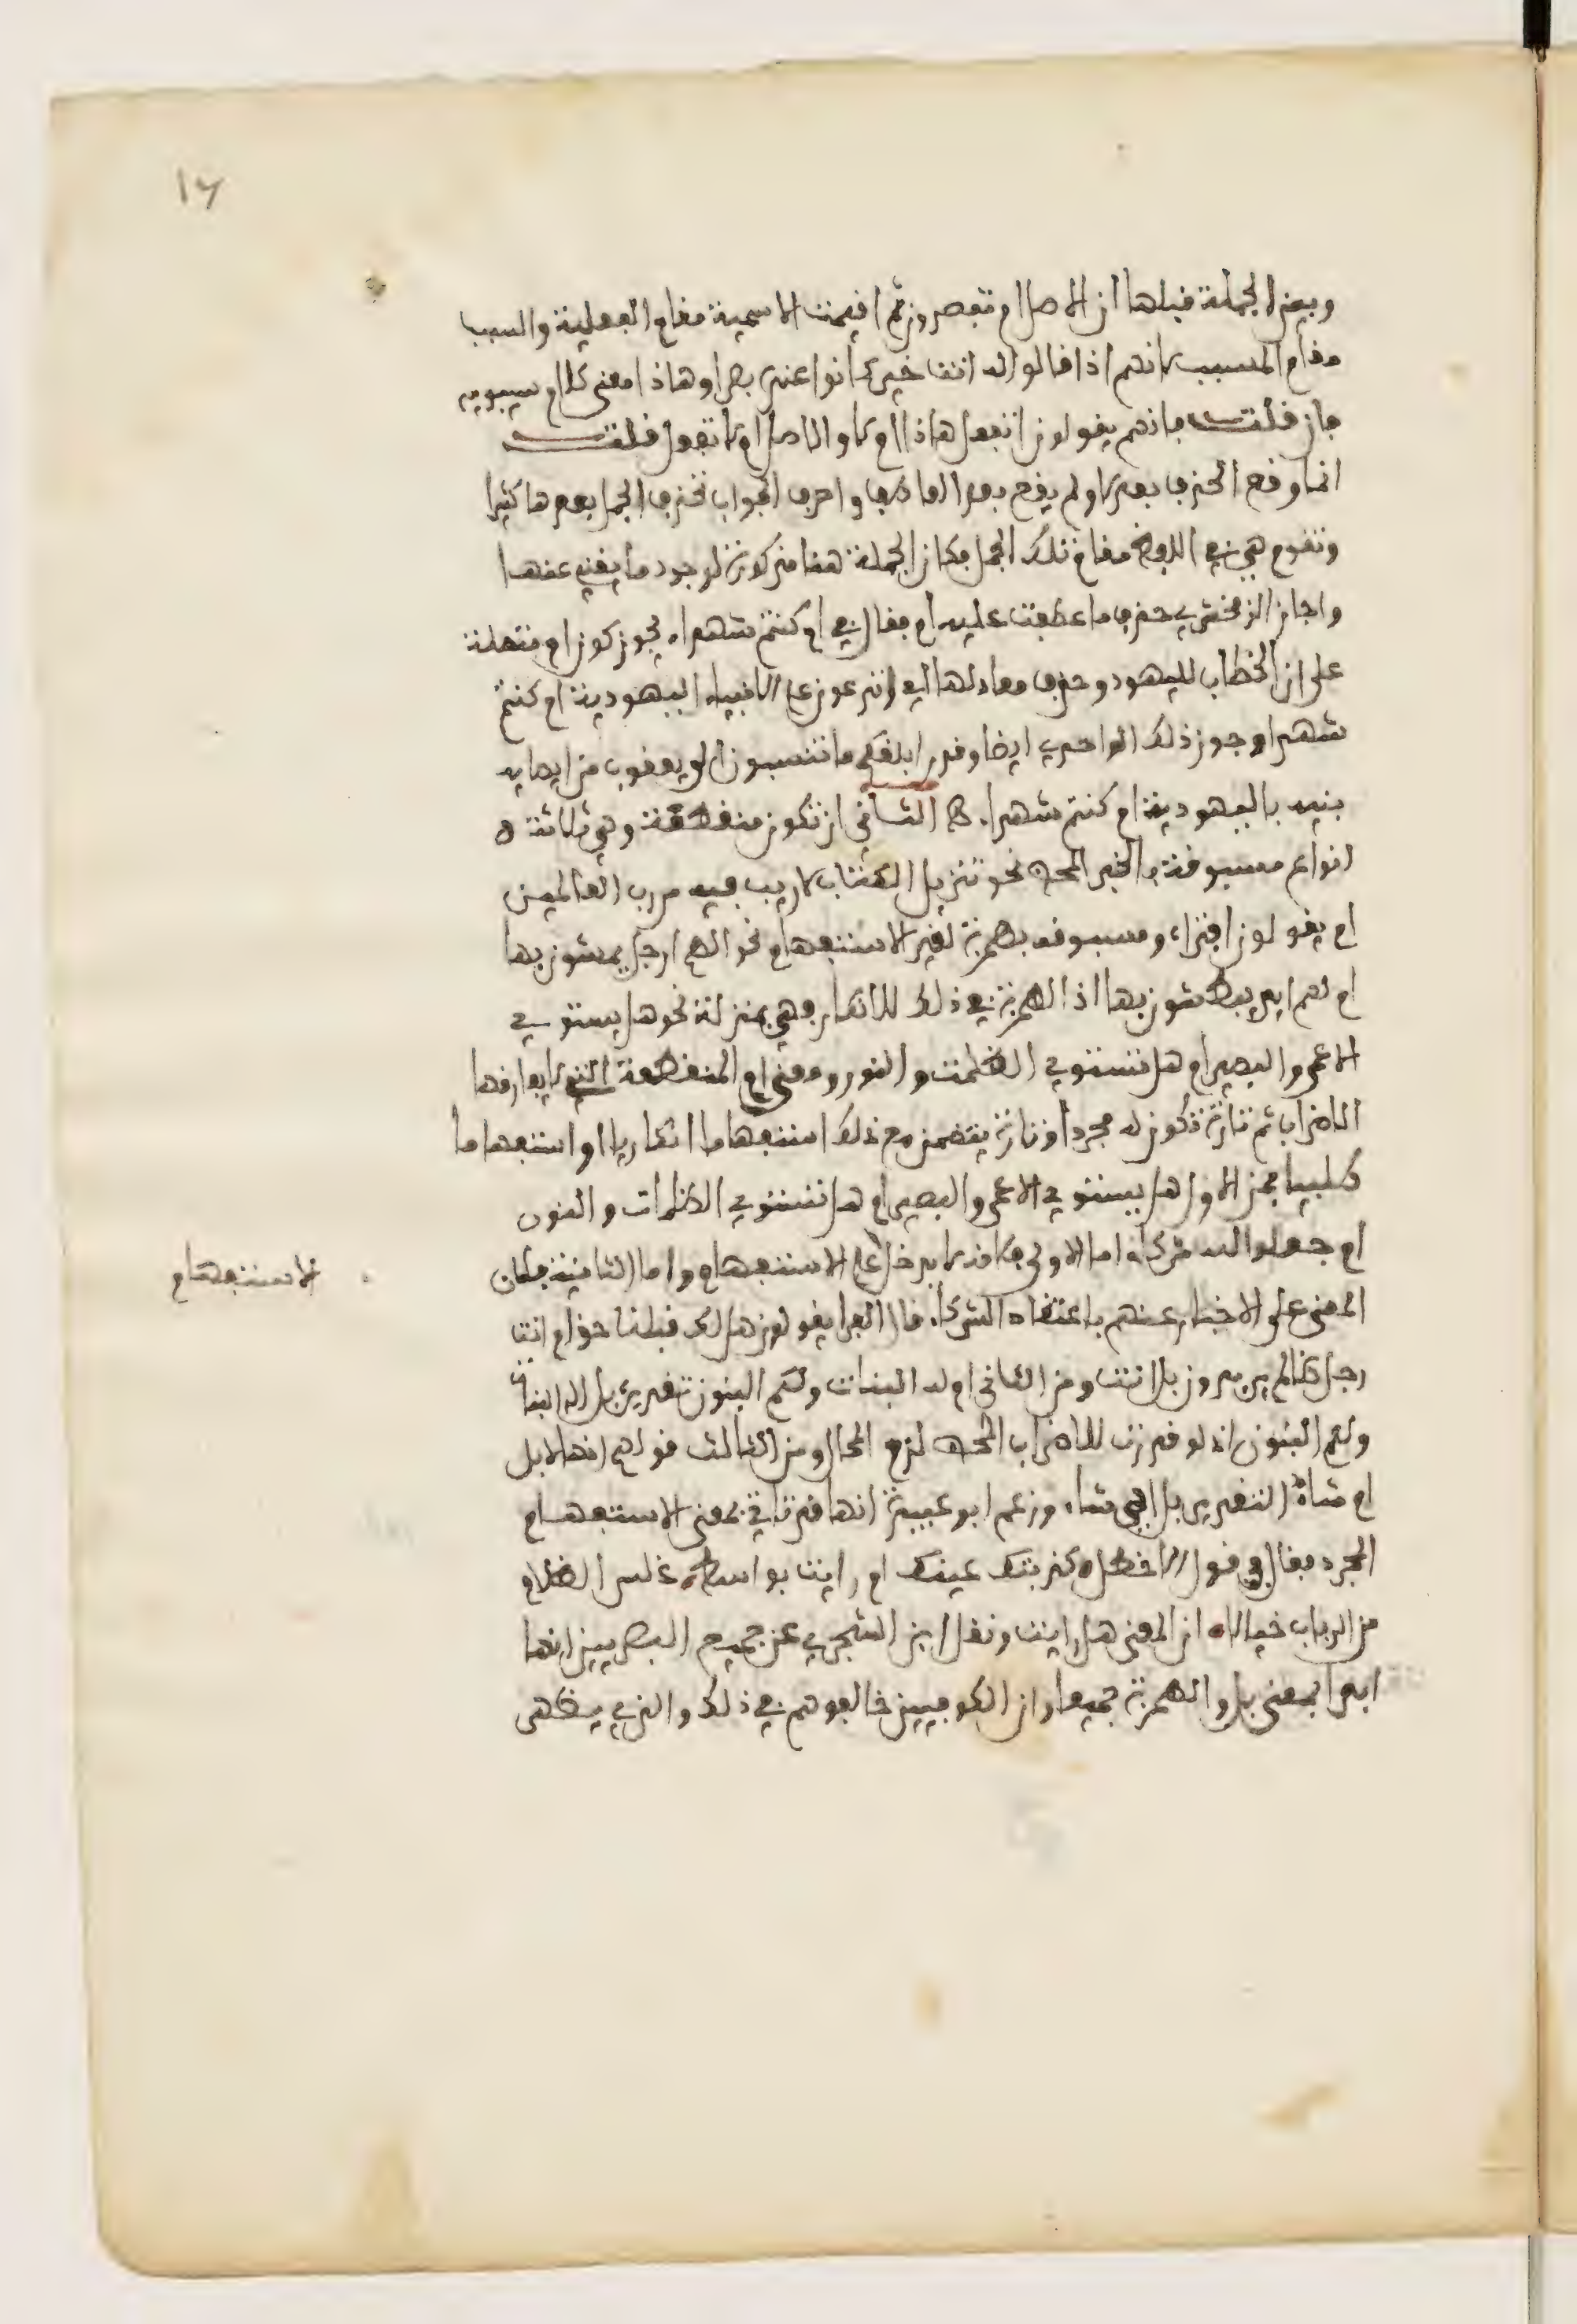 ١٢
وبين الجملة قبلها ان الاصل ام تبصرون ثم اقيمت الاسمية مقام الفعلية والسبب
مقام المسبب لانهم اذا قالوا له انت خير كانوا عنده بصرا وهاذا معنى كلام سيبويه
فان قلت فانهم يقولون اتفعل هاذا ام لا والاصل ام لا تفعل قلت
انما وقع الحذف بعد لا ولم يقع بعد العاطف واحرف الجواب تحذف الجمل بعدها كثيرا
وتقوم هي في اللفظ مقام تلك الجمل فكان الجملة هنا مذكورة لوجود ما يغني عنها
واجاز الزمخشري حذف ما عطفت عليه ام فقال في ام كنتم شهداء يجوز كون ام متصلة
على ان الخطاب لليهود وحذف معادلها اي اتدعون على الانبياء اليهودية ام كنتم
شهداء وجوز ذلك الواحدي ايضا وقدر ابلغكم ما تنسبون الى يعقوب من ايصايه
بنيه باليهودية ام كنتم شهداء الثاني ان تكون منقطعة وهي ثلاثة
انواع مسبوقة بالخبر المحض نحو تنزيل الكتاب لا ريب فيه من رب العالمين
ام يقولون افتراه ومسبوقة بهمزة لغير الاستفهام نحو الهم ارجل يمشون بها
ام لهم ايد يبطشون بها اذ الهمزة في ذلك للانكار وهي بمنزلة نحو هل يستوي
الاعمى والبصير ام هل تستوي الظلمت والنور ومعنى ام المنقطعة الذي لا يفارقها
الاضراب ثم تارة تكون له مجردا وتارة يتضمن مع ذلك استفهاما انكاريا او استفهاما
طلبيا فمن الاول هل يستوي الاعمى والبصير ام هل تستوي الظلمات والنور
ام جعلوا لله شركاء اما الاولى فلانه لا يدخل على الاستفهام واما الثانية فلان
الاستفهام
المعنى على الاخبار عنهم باعتقاد الشركاء قال الفرا يقولون هل لك قبلنا حق ام انت
رجل ظالم يريدون بل انت ومن الثاني ام له البنات ولكم البنون تقديره بل اله البنات
ولكم البنون اذ لو قدرت للاضراب المحض لزم المحال ومن الثالث قولهم انها لابل
ام شاة التقدير بل اهي شاء وزعم ابو عبيدة انها قد تاتي بمعنى الاستفهام
المجرد فقال في قول الاخطل كذبتك عينك ام رايت بواسط غلس الظلام
من الرباب خيالا ان المعنى هل رايت ونقل ابن الشجري عن جميع البصريين انها
ابدا بمعنى بل والهمزة جميعا وان الكوفيين خالفوهم في ذلك والذي يظهر